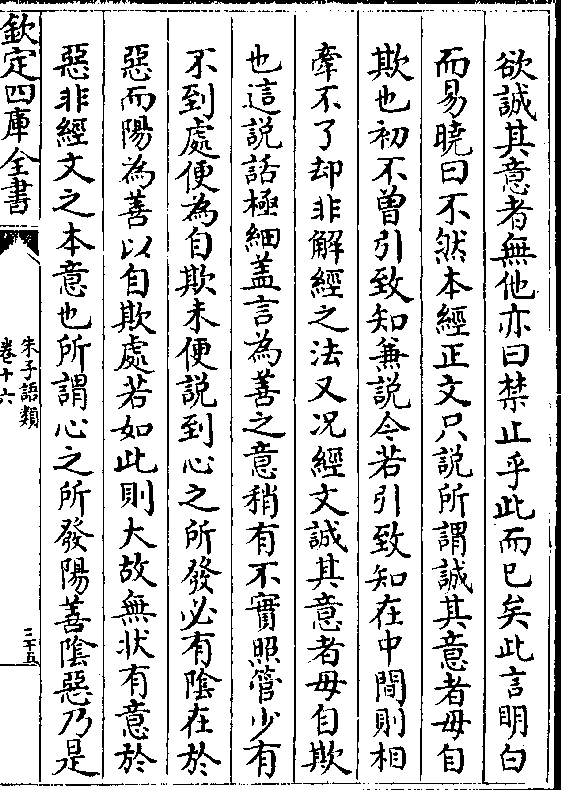 欲誠其意者無他亦曰禁止乎此而已矣此言明白
而易曉曰不然本經正文只説所謂誠其意者毋自
欺也初不曽引致知兼説今若引致知在中間則相
牽不了却非解經之法又况經文誠其意者毋自欺
也這説話極細盖言為善之意稍有不實照管少有
不到處便為自欺未便説到心之所發必有陰在於
惡而陽為善以自欺處若如此則大故無状有意於
惡非經文之本意也所謂心之所發陽善陰惡乃是
欽定四庫全書
朱子語類
卷十六
三十五